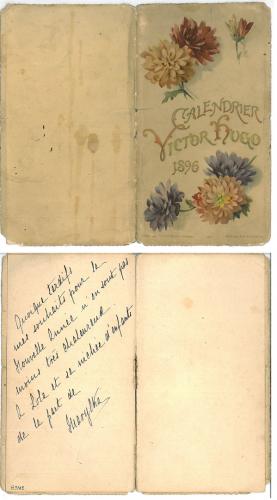 CALENDRIER
VICTOR HUGO
1896
Quoique tardifs
mes souhaits pour la
Nouvelle Année n'en sont pas
moins très chaleureux
à Lole et sa nichée d'enfants
de la part de